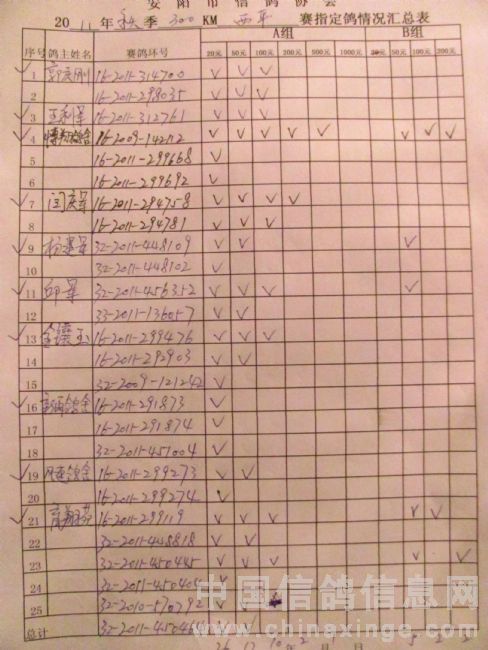 安阳市信鸽协会
2011年秋季300KM西平 赛指定鸽情况汇总表
序号 鸽主姓名 赛鸽环号 A组 B组
20元 50元 100元 200元 500元 1000元 20元 50元 100元 200元
✓ 1 郭庆刚 16-2011-314700 ✓ ✓ ✓
2 16-2011-298035 ✓ ✓ ✓
✓ 3 16-2011-312761 ✓ ✓ ✓
✓ 4 16-2009-142112 ✓ ✓ ✓ ✓ ✓ ✓ ✓ ✓
5 16-2011-299668 ✓
6 16-2011-299692 ✓
✓ 7 闫庆军 16-2011-294758 ✓ ✓ ✓ ✓
8 16-2011-294781 ✓ ✓ ✓
✓ 9 32-2011-448109 ✓ ✓ ✓
10 32-2011-448102 ✓ ✓
✓ 11 邱军 32-2011-456352 ✓ ✓ ✓ ✓
12 33-2011-136057 ✓ ✓
✓ 13 金镶玉 16-2011-299476 ✓ ✓ ✓
14 16-2011-292903 ✓ ✓
15 32-2009-121242 ✓
✓ 16 16-2011-291873 ✓
17 16-2011-291874 ✓
18 32-2011-451004 ✓
✓ 19 16-2011-299273 ✓ ✓
20 16-2011-299274 ✓
✓ 21 16-2011-299119 ✓ ✓ ✓ ✓ ✓
22 32-2011-448818 ✓ ✓
23 32-2011-450445 ✓ ✓ ✓ ✓ ✓
24 32-2011-45040 ✓
25 32-2010-670792 ✓ ✓
总计 32-2011-4504 ✓ ✓
26 10 2 5 2
中国信鸽信息网
www.chinaxinge.com